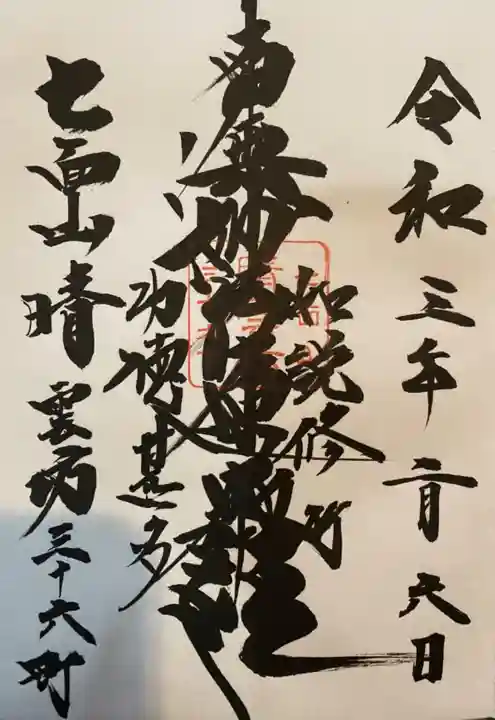 令和三年二月六日
如説修行
南無妙法蓮華経
功徳甚多
七面山晴雲坊三十六町